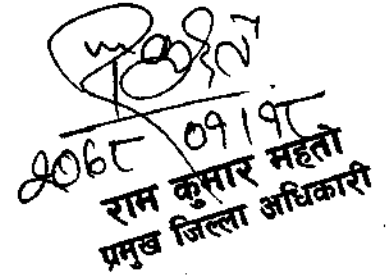 २०६८/०१/१८
राम कुमार महतो
प्रमुख जिल्ला अधिकारी